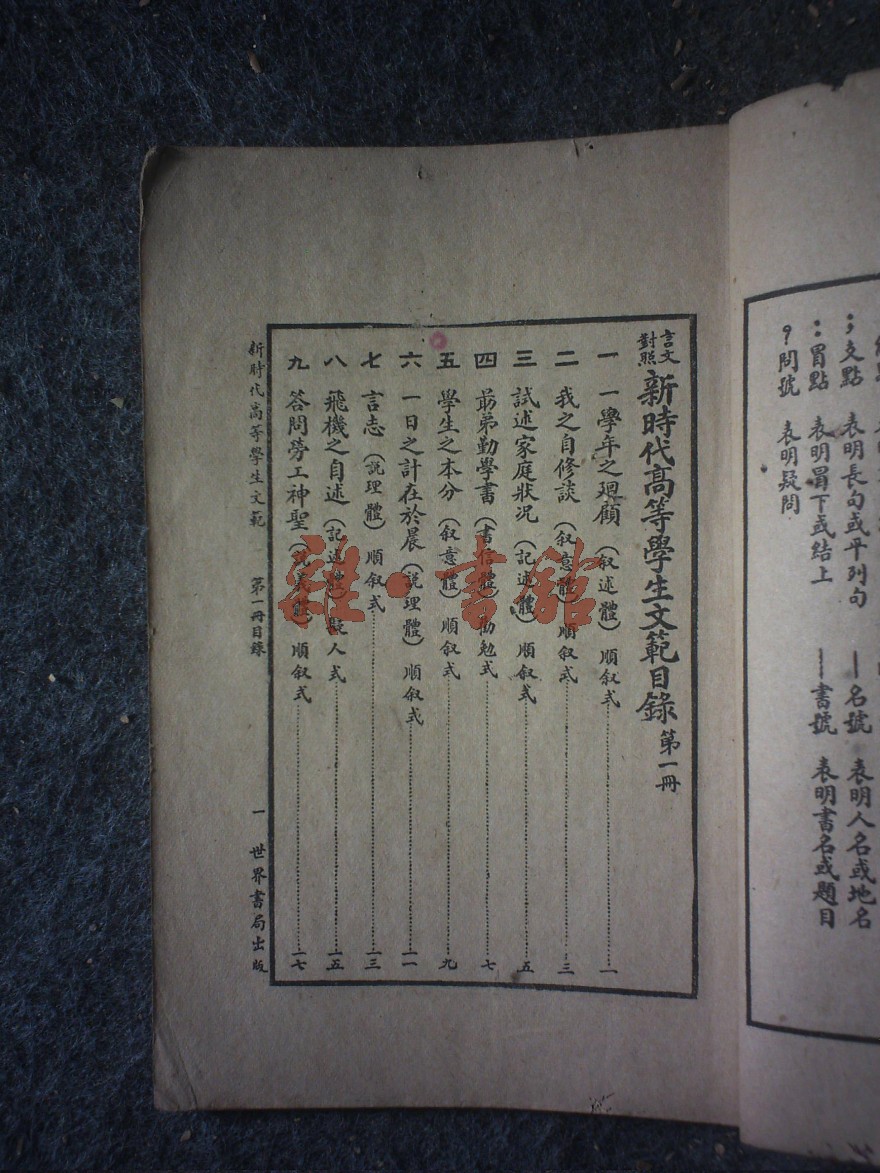 ；支點 表明長句或平列句 ｜名號 表明人名或地名
：冒點 表明冒下或结上 ｜書號 表明書名或題目
？問號 表明疑問
言文對照 新時代高等學生文範目錄 第一冊
一 一學年之廻顧（叙述體）順叙式……一
二 我之自修談（叙意體）順叙式……三
三 試述家庭狀况（記述體）順叙式……五
四 勗弟勤學書（書信體）勸勉式……七
五 學生之本分（叙意體）順叙式……九
六 一日之計在於晨（説理體）順叙式……一一
七 言志（説理體）順叙式……一三
八 飛機之自述（記述體）擬人式……一五
九 答問勞工神聖（説義體）順叙式……一七
新時代高等學生文範 第一冊目錄 一 世界書局出版
雜·書館